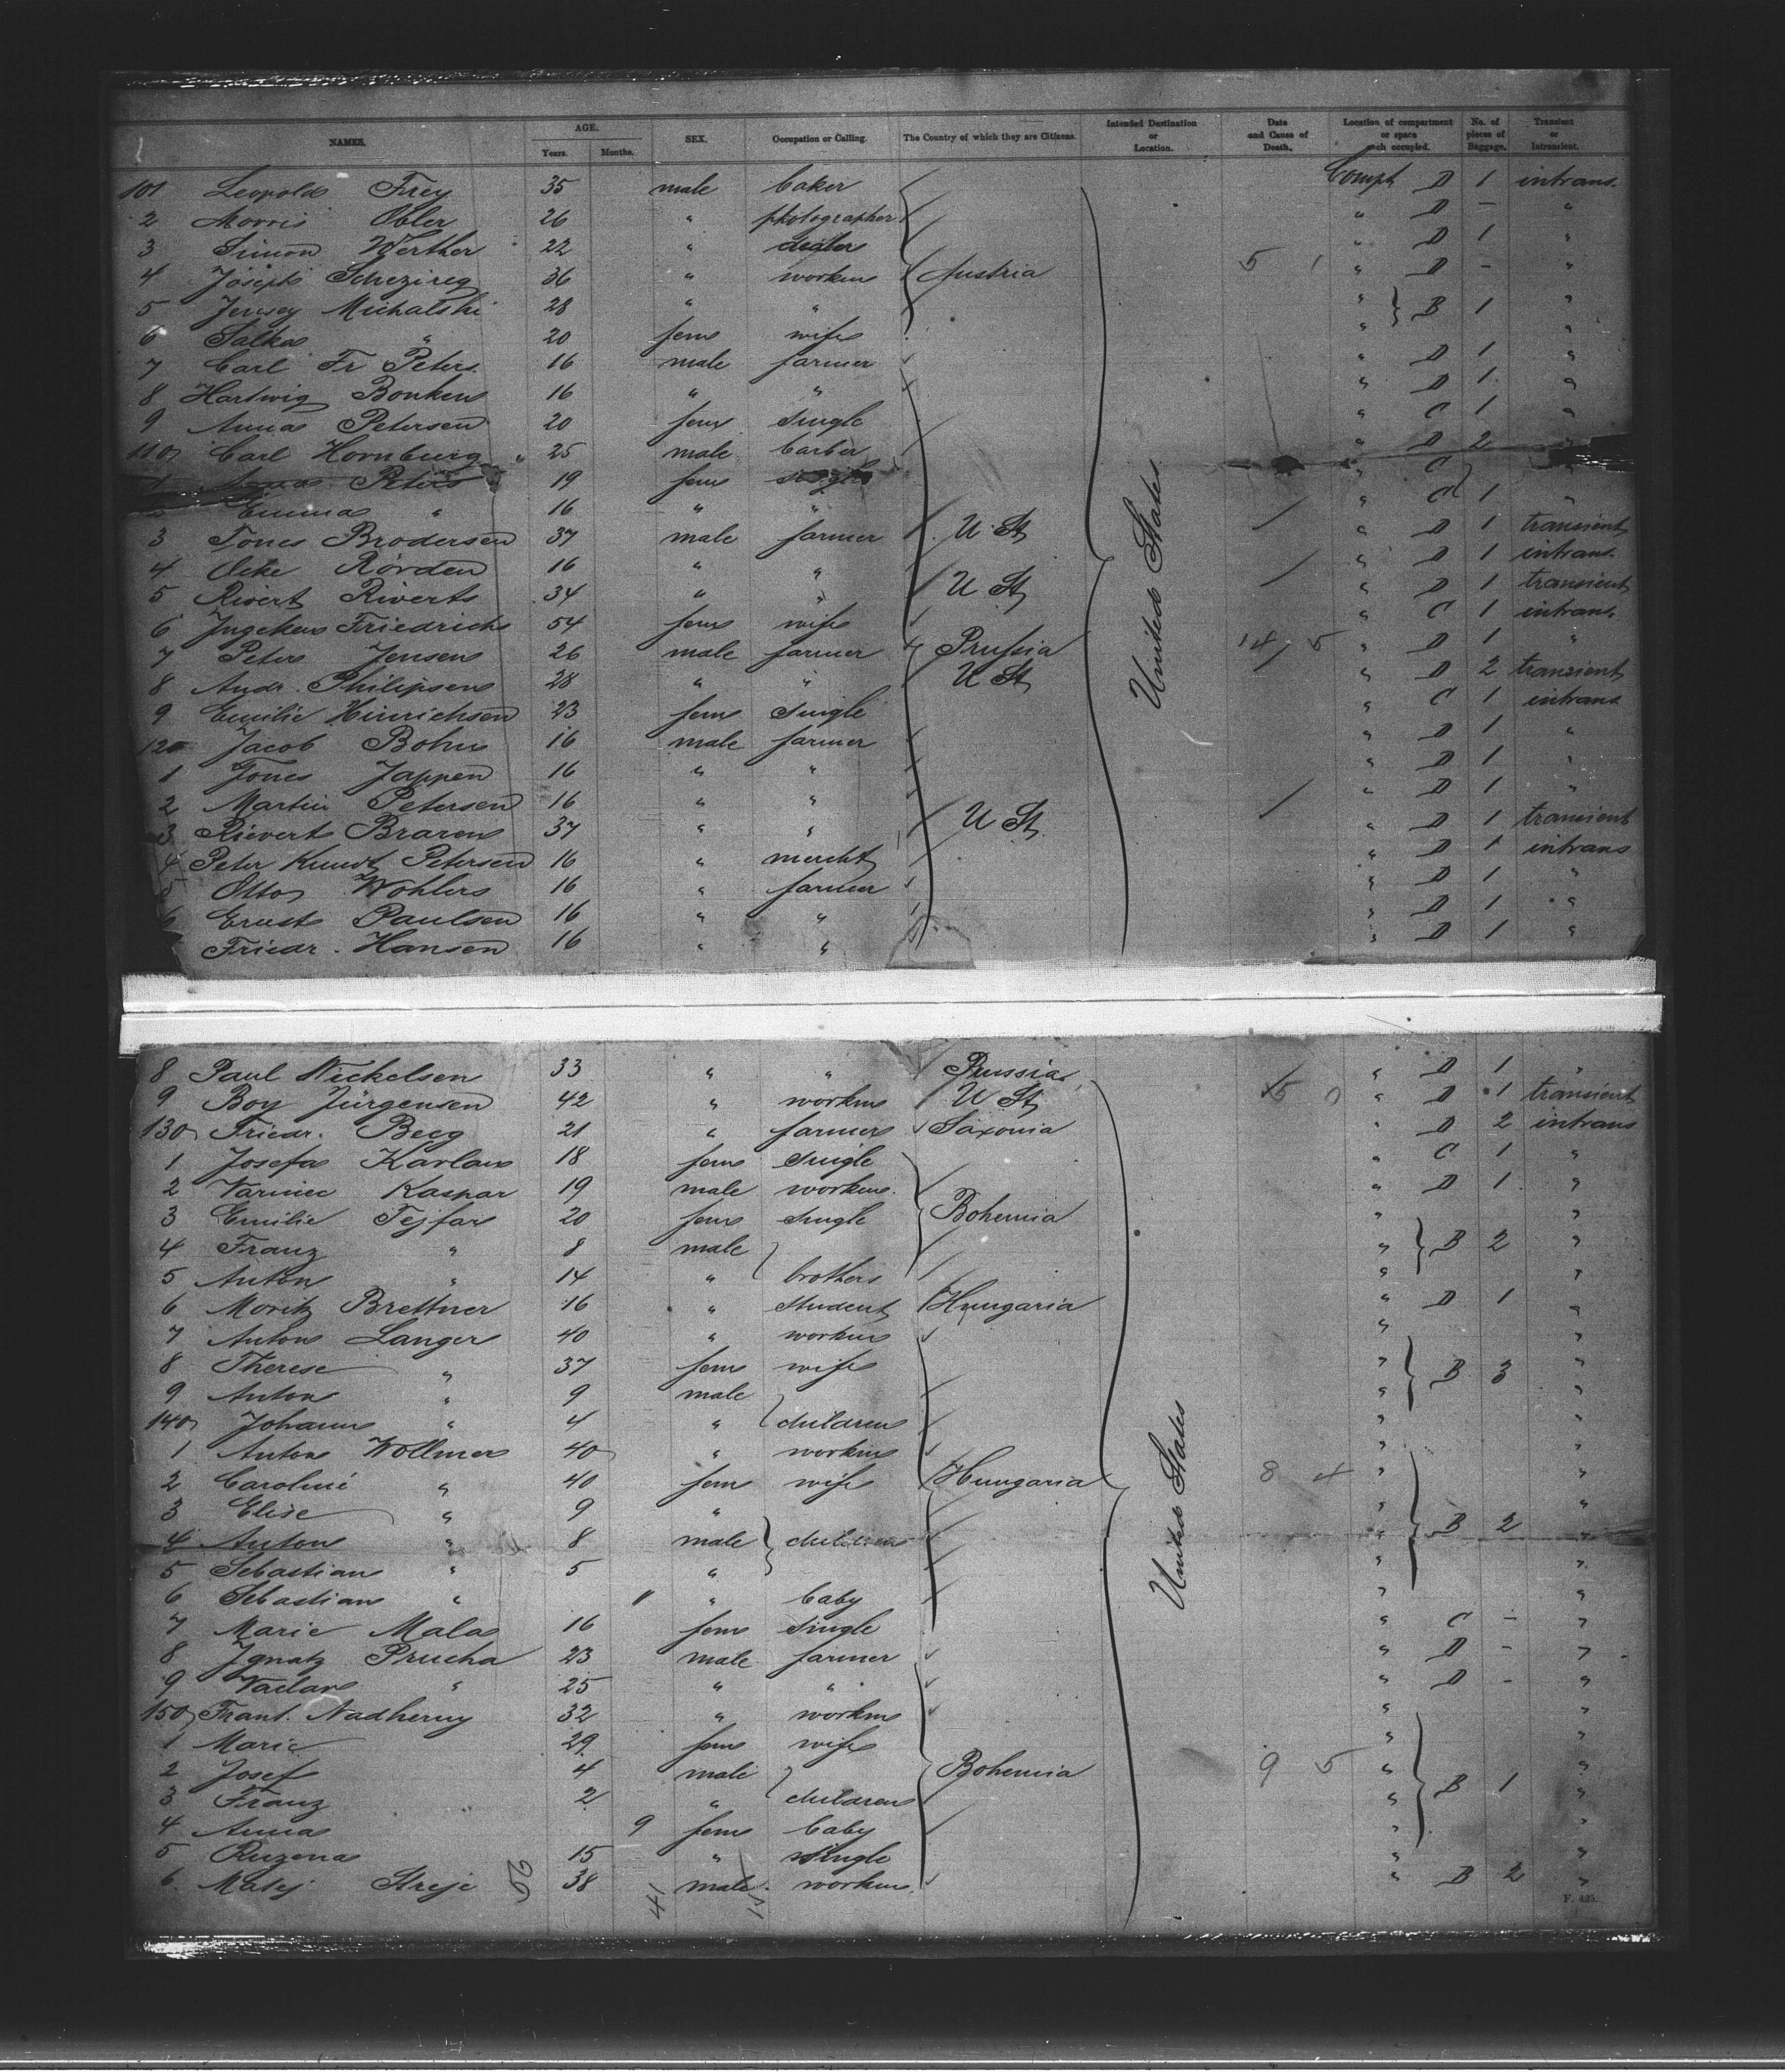 NAMES. AGE. Years. Months. SEX. Occupation or Calling. The Country of which they are Citizens. Intended Destination or Location. Date and Cause of Death. Location of compartment or space each occupied. No. of pieces of Baggage. Transient or Intransient.
101 Leopold Frey 35 male baker Compt D 1 intrans.
2 Morris Obler 26 " photographer " D - "
3 Simon Werther 22 " dealer " D 1 "
4 Joseph 36 " workm Austria 5 1 " D - "
5 Michalski 28 " " " B 1 "
6 Salka " 20 fem wife " "
7 Carl Fr Peters 16 male farmer " D 1 "
8 Hartwig Bonken 16 " " " D 1 "
9 Anna Petersen 20 fem single " C 1 "
110 Carl Hornburg 25 male barber " D 2 "
1 Anna Peters 19 fem single " C "
2 Emma " 16 " " " C 1 "
3 Tönes Brodersen 37 male farmer U. St. " D 1 transient
4 Ocke Rörden 16 " " " D 1 intrans.
5 Rivert Riverts 34 " " U St. " D 1 transient
6 Ingeken Friedrichs 54 fem wife " C 1 intrans.
7 Peter Jensen 26 male farmer Prussia 14 5 " D 1 "
8 Andr. Philipsen 28 " " U St. " D 2 transient
9 Emilie Hinrichsen 23 fem single " C 1 intrans
120 Jacob Bohn 16 male farmer " D 1 "
1 Tönes Jappen 16 " " " D 1 "
2 Martin Petersen 16 " " " D 1 "
3 Rievert Braren 37 " " U St. " D 1 transient
4 Peter Knudt Petersen 16 " mercht " D 1 intrans
5 Otto Wohlers 16 " farmer " D 1 "
6 Ernst Paulsen 16 " " " D 1 "
Friedr. Hansen 16 " " " D 1 "
United States
8 Paul Nickelsen 33 " " Prussia " D 1 "
9 Boy Jürgensen 42 " workm U St. 15 0 " D 1 transient
130 Friedr. Beeg 21 " farmer Saxonia " D 2 intrans
1 Josefa Karlan 18 fem single " C 1 "
2 Kaspar 19 male workm. " D 1 "
3 Emilie Tejfar 20 fem single Bohemia " "
4 Franz " 8 male " B 2 "
5 Anton " 14 " brothers " "
6 Moritz Brettner 16 " student Hungaria " D 1 "
7 Anton Langer 40 " workm " "
8 Therese " 37 fem wife " B 3 "
9 Anton " 9 male " "
140 Johann " 4 " children " "
1 Anton Wollmer 40 " workm " "
2 Caroline " 40 fem wife Hungaria 8 4 " "
3 Elise " 9 " " "
4 Anton " 8 male children " B 2 "
5 Sebastian " 5 " " "
6 Sebastian " 11 " baby " "
7 Marie Mala 16 fem single " C - "
8 Ignatz Prucha 23 male farmer " D - "
9 Vaclav " 25 " " " D - "
150 Frant. Nadherny 32 " workm " "
1 Marie 29 fem wife " "
2 Josef 4 male Bohemia 9 5 " "
3 Franz 2 " children " B 1 "
4 Anna 9 fem baby " "
5 Ruzena 15 " single " "
6 Matej Streje 38 male workm. " B 2 "
United States
56 41 15
F. 425.